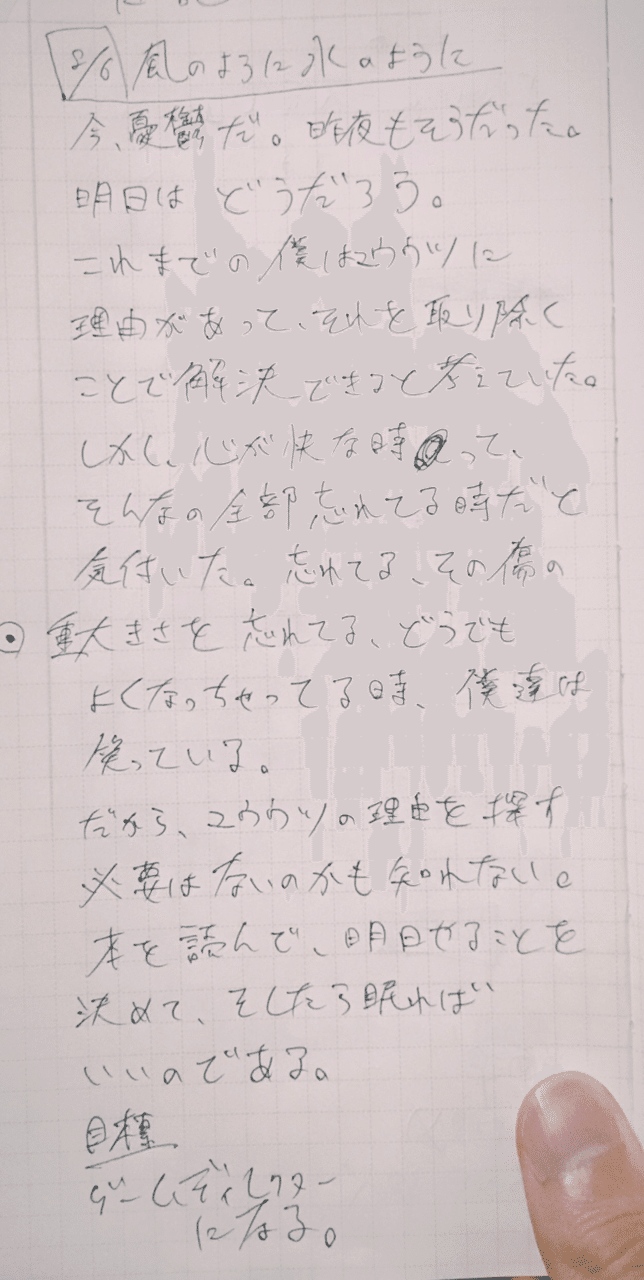 8/6 風のように水のように
今、憂鬱だ。昨夜もそうだった。
明日は どうだろう。
これまでの僕はユウウツに
理由があって、それを取り除く
ことで解決できると考えていた。
しかし、心が快な時って、
そんなの全部忘れてる時だと
気付いた。忘れてる、その傷の
重大きさを忘れてる、どうでも
よくなっちゃってる時、僕達は
笑っている。
だから、ユウウツの理由を探す
必要はないのかも知れない。
本を読んで、明日やることを
決めて、そしたら眠れば
いいのである。
目標
ゲームディレクター
になる。